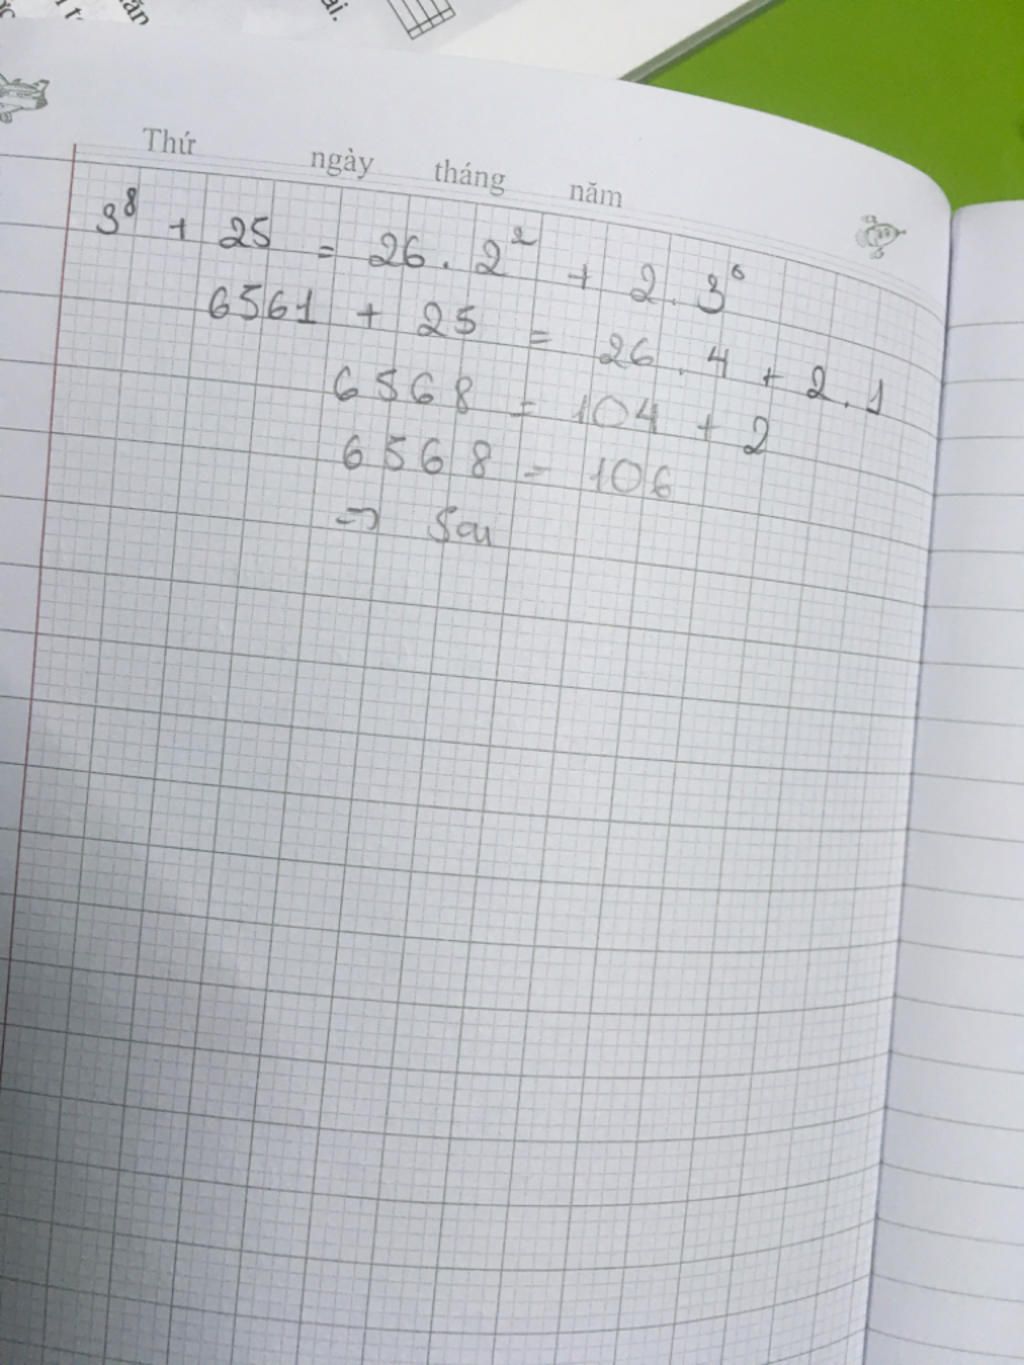 Thứ ngày tháng năm
3⁸ + 25 = 26 . 2² + 2 . 3⁰
6561 + 25 = 26 . 4 + 2 . 1
6568 = 104 + 2
6568 = 106
=> Sai